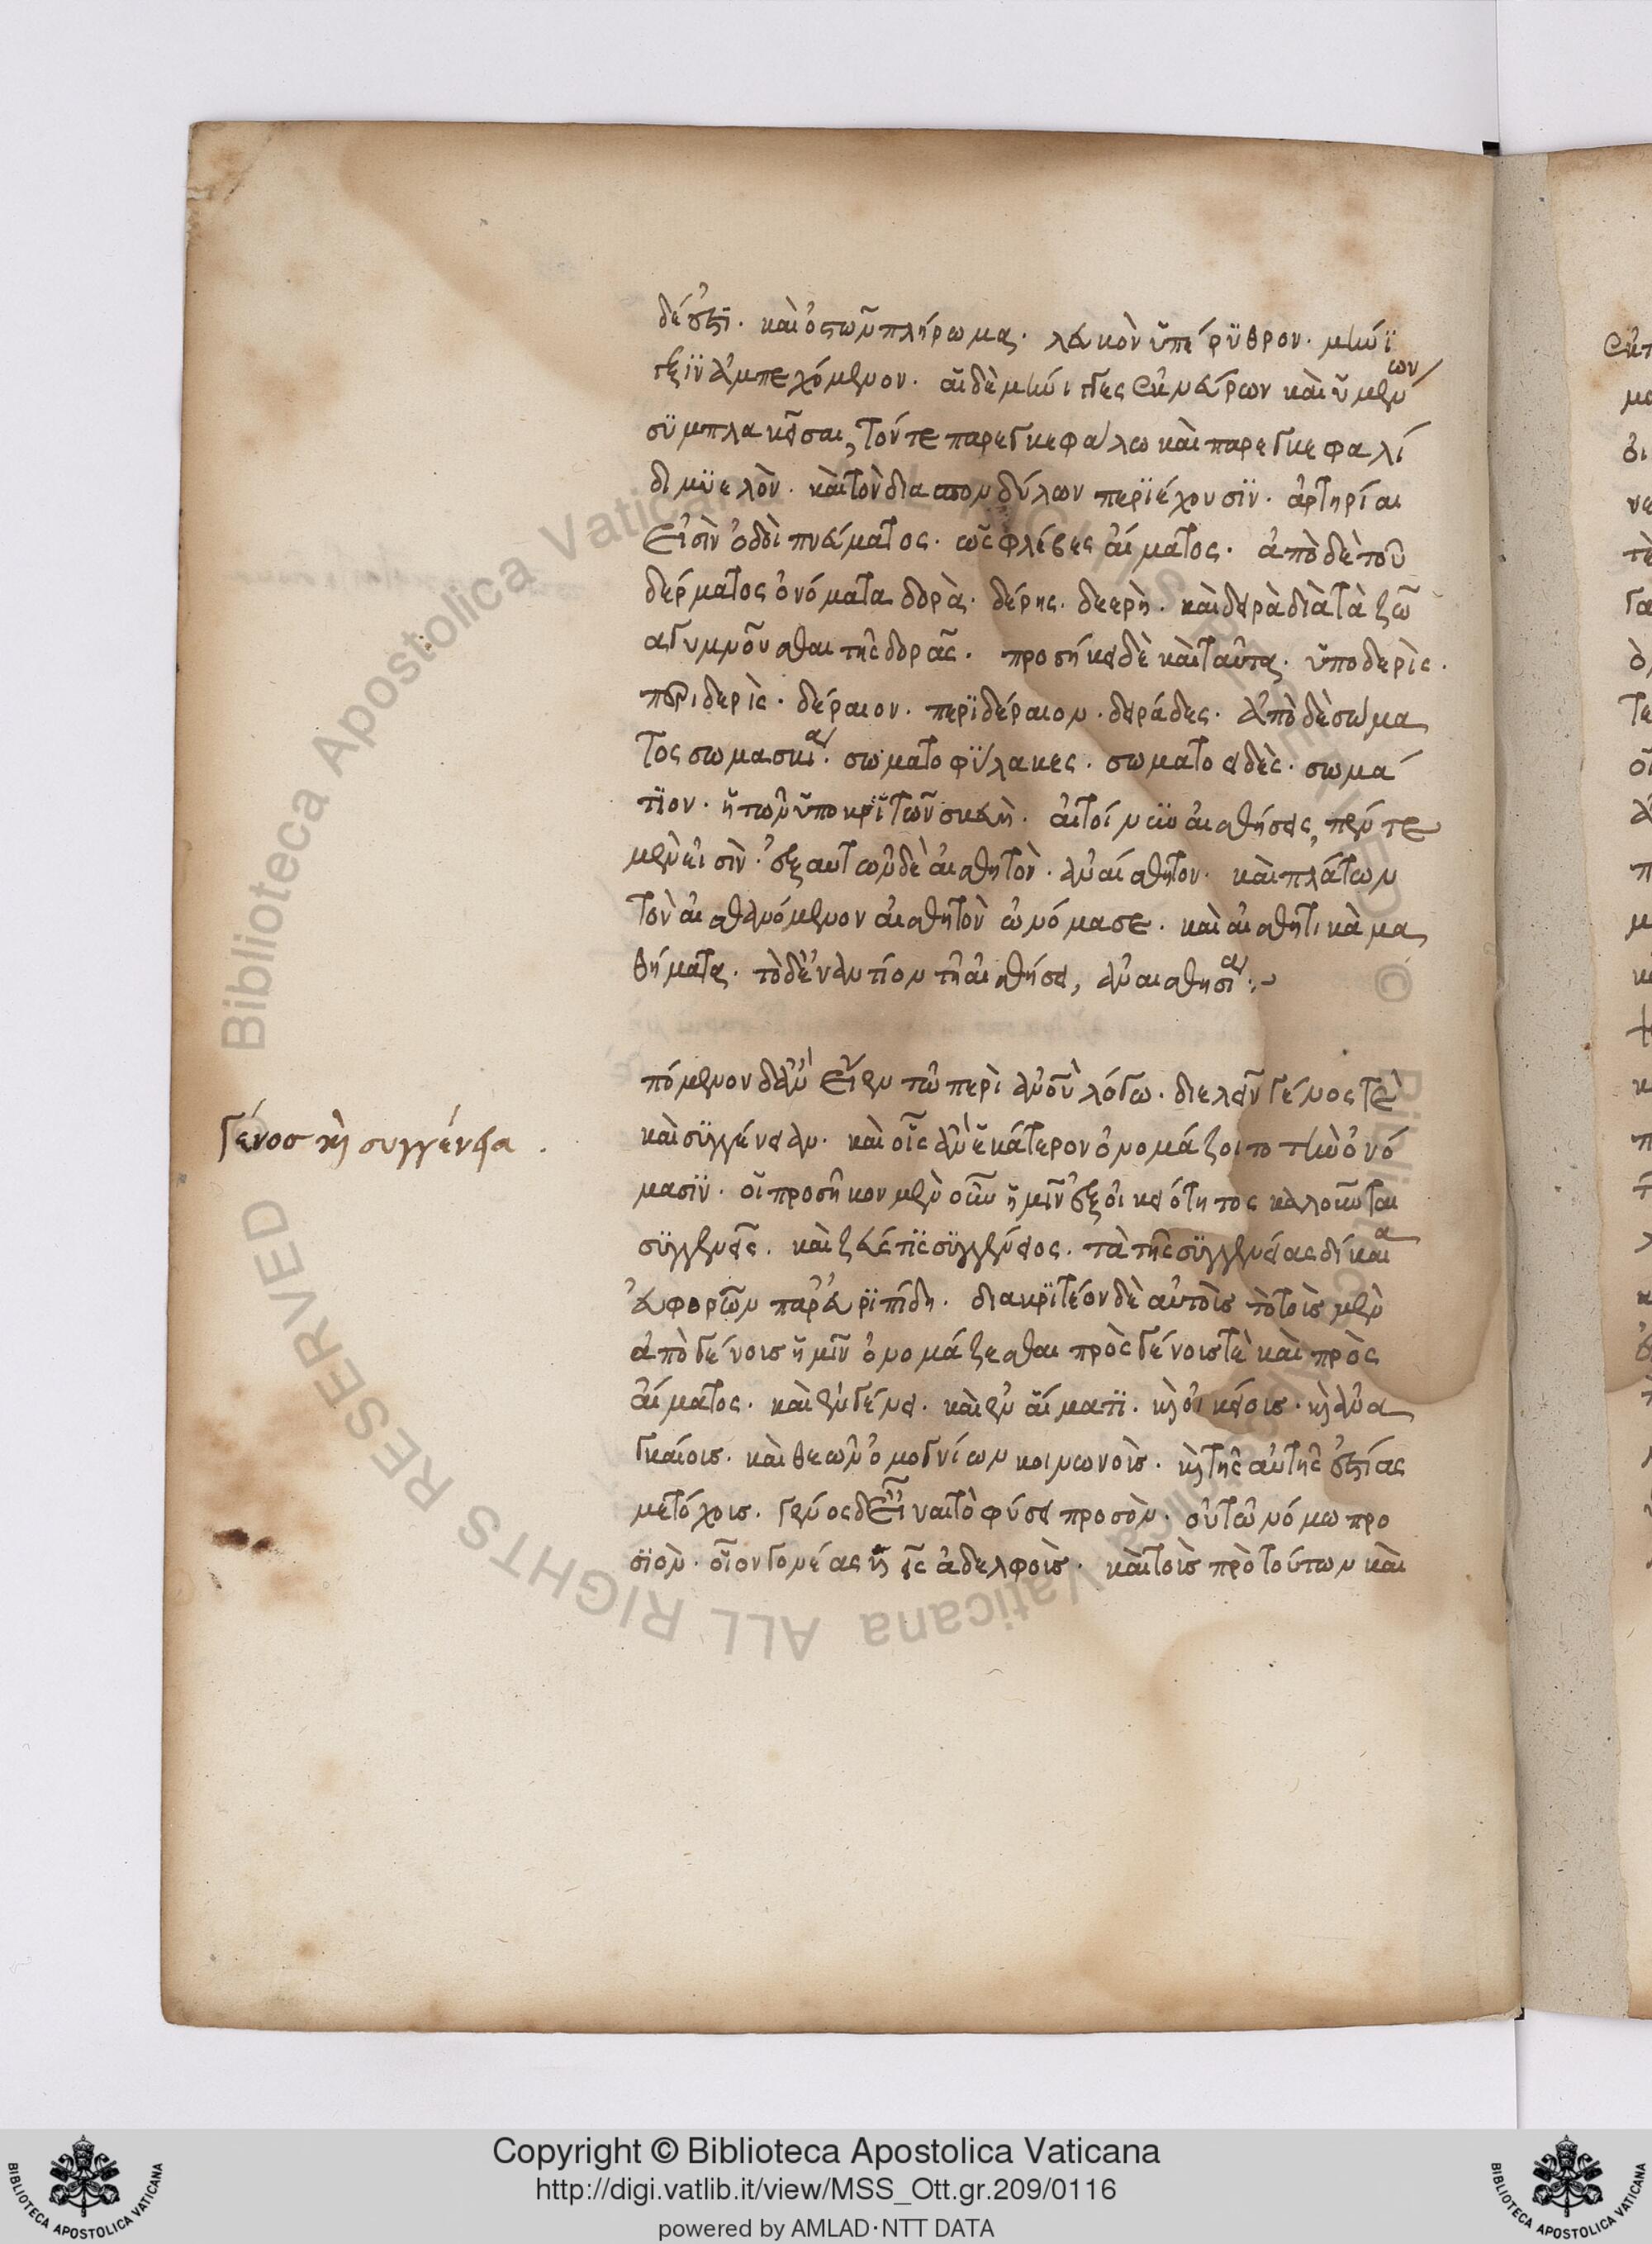 δέ ἐστι. καὶ ὀστῶν πλήρωμα. λευκὸν ὑπέρυθρον. μήνϊ
γξϊν ἀμπεχόμενον. αἱ δὲ μήνιγγες ἐκ νεύρων καὶ ὑμένων
συμπλακεῖσαι, τόν τε παρεγκεφάλω καὶ παρεγκεφαλί
δι μυελὸν. καὶ τὸν δια σπονδύλων περϊέχουσϊν. ἀρτηρίαι
εἰσὶν ὁδοὶ πνεύματος. ὡς φλέβες αἵματος. ἀπὸ δὲ τοῦ
δέρματος ὀνόματα δορὰ. δέρης. δεερὴ. καὶ δειρὰ διὰ τὰ ζῶ
α γυμνοῦσθαι τῆς δορᾶς. προσήκει δὲ καὶ ταῦτα. ὑποδερὶς.
περιδερὶς. δέραιον. περϊδέραιον. δειράδες. ἀπὸ δὲ σώμα
τος σωμασκία. σωματοφύλακες. σωματοειδὲς. σωμά
τϊον. ἡ τῶν ὑποκριτῶν σκευὴ. αἱ τοίνυν αἰσθήσεις, πέντε
μὲν εἰσὶν. ἐξ αυτῶν δὲ αἰσθητὸν. ἀναίσθητον. καὶ πλάτων
τὸν αἰσθανόμενον αἰσθητὸν ὠνόμασε. καὶ αἰσθητικὰ μα
θήματα. τὸ δ' ἐναντίον τῆ αἰσθήσει, ἀναισθησία.
πόμενον δ' ἂν εἴη ἐν τῶ περὶ ἀνοῦν λόγω. διελεῖν γένος τὲ
καὶ συγγένειαν. καὶ οἷς ἂν ἑκάτερον ὀνομάζοιτο τῶν ὀνό
μασϊν. οἱ προσῆκον μὲν οὖν ἡμῖν ἐξ οἰκειότητος καλοῦνται
συγγενεῖς. καὶ ζεύς τϊς συγγένειος. τὰ τῆς συγγενείας δίκαια
εὐφορῶν παρ' εὐρϊπίδη. διακρϊτέον δὲ αὐτοῖς τὸ τοῖς μὲν
ἀπὸ γένοις ἡμῖν ὀνομάζεσθαι πρὸς γένοις τὲ καὶ πρὸς
αἵματος. καὶ ἐν γένει. καὶ ἐν αἵματϊ. καὶ οἰκείοις. καὶ ἀνα
γκαίοις. καὶ θεῶν ὁμογνίων κοινωνοῖς. καὶ τῆς αὐτῆς ἑστίας
μετόχοις. γένος δ' εἶναι τὸ φύσει προσὸν. οὐ τῶ νόμω προ
σϊὸν. οἷον γονέας ἢ εἰς ἀδελφοῖς. καὶ τοῖς πρὸ τούτων καὶ
Γένοσ κὴ συγγένεια.
Copyright © Biblioteca Apostolica Vaticana
http://digi.vatlib.it/view/MSS_Ott.gr.209/0116
powered by AMLAD·NTT DATA
BIBLIOTECA APOSTOLICA VATICANA
BIBLIOTECA APOSTOLICA VATICANA